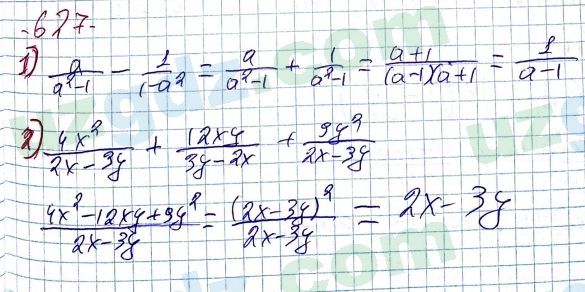 -627-
1) a/(a²-1) - 1/(1-a²) = a/(a²-1) + 1/(a²-1) = (a+1)/((a-1)(a+1)) = 1/(a-1)
2) 4x²/(2x-3y) + 12xy/(3y-2x) + 9y²/(2x-3y)
(4x²-12xy+9y²)/(2x-3y) = (2x-3y)²/(2x-3y) = 2x-3y